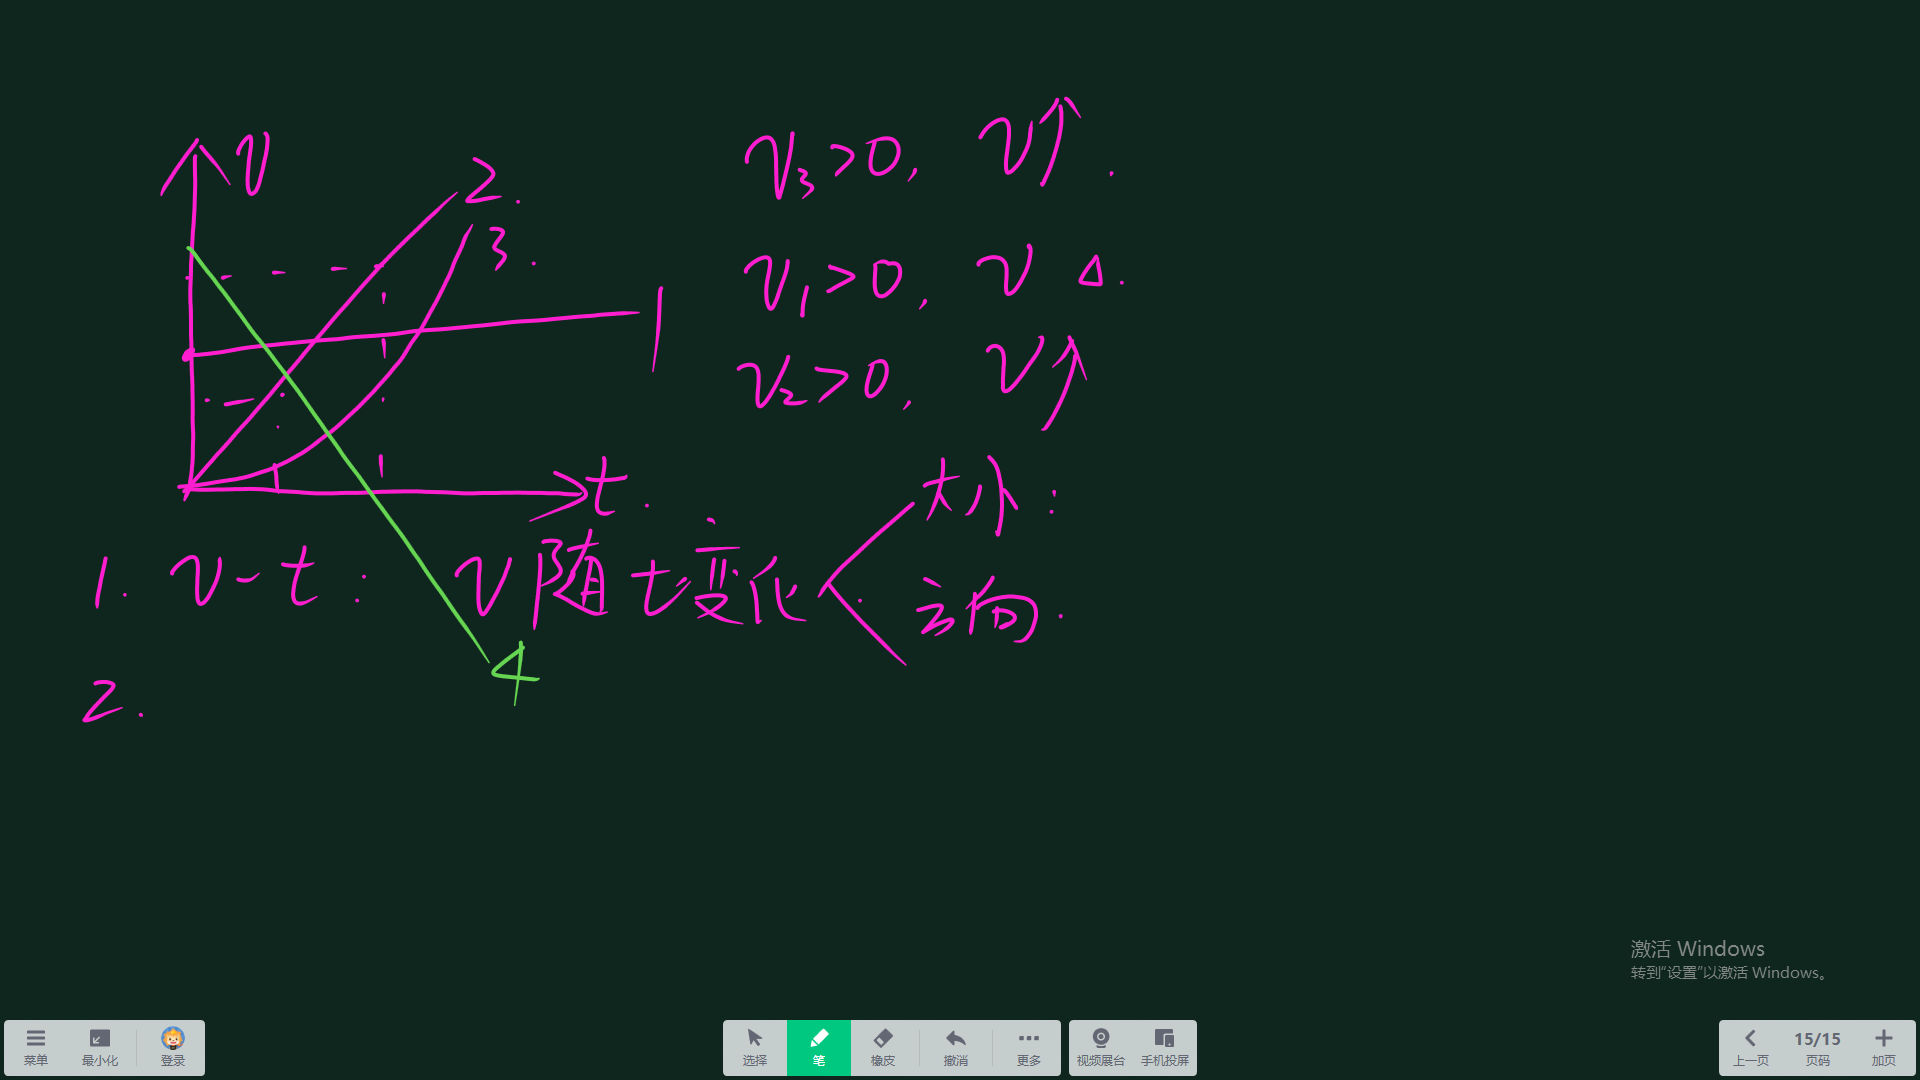 v
2.
3.
1
t.
4
v₃>0, v↑.
v₁>0, v Δ.
v₂>0, v↑
1. v-t: v随t变化 大小:
方向.
2.
激活 Windows
转到“设置”以激活 Windows。
菜单 最小化 登录
选择 笔 橡皮 撤消 更多
视频展台 手机投屏
上一页 15/15 页码 加页